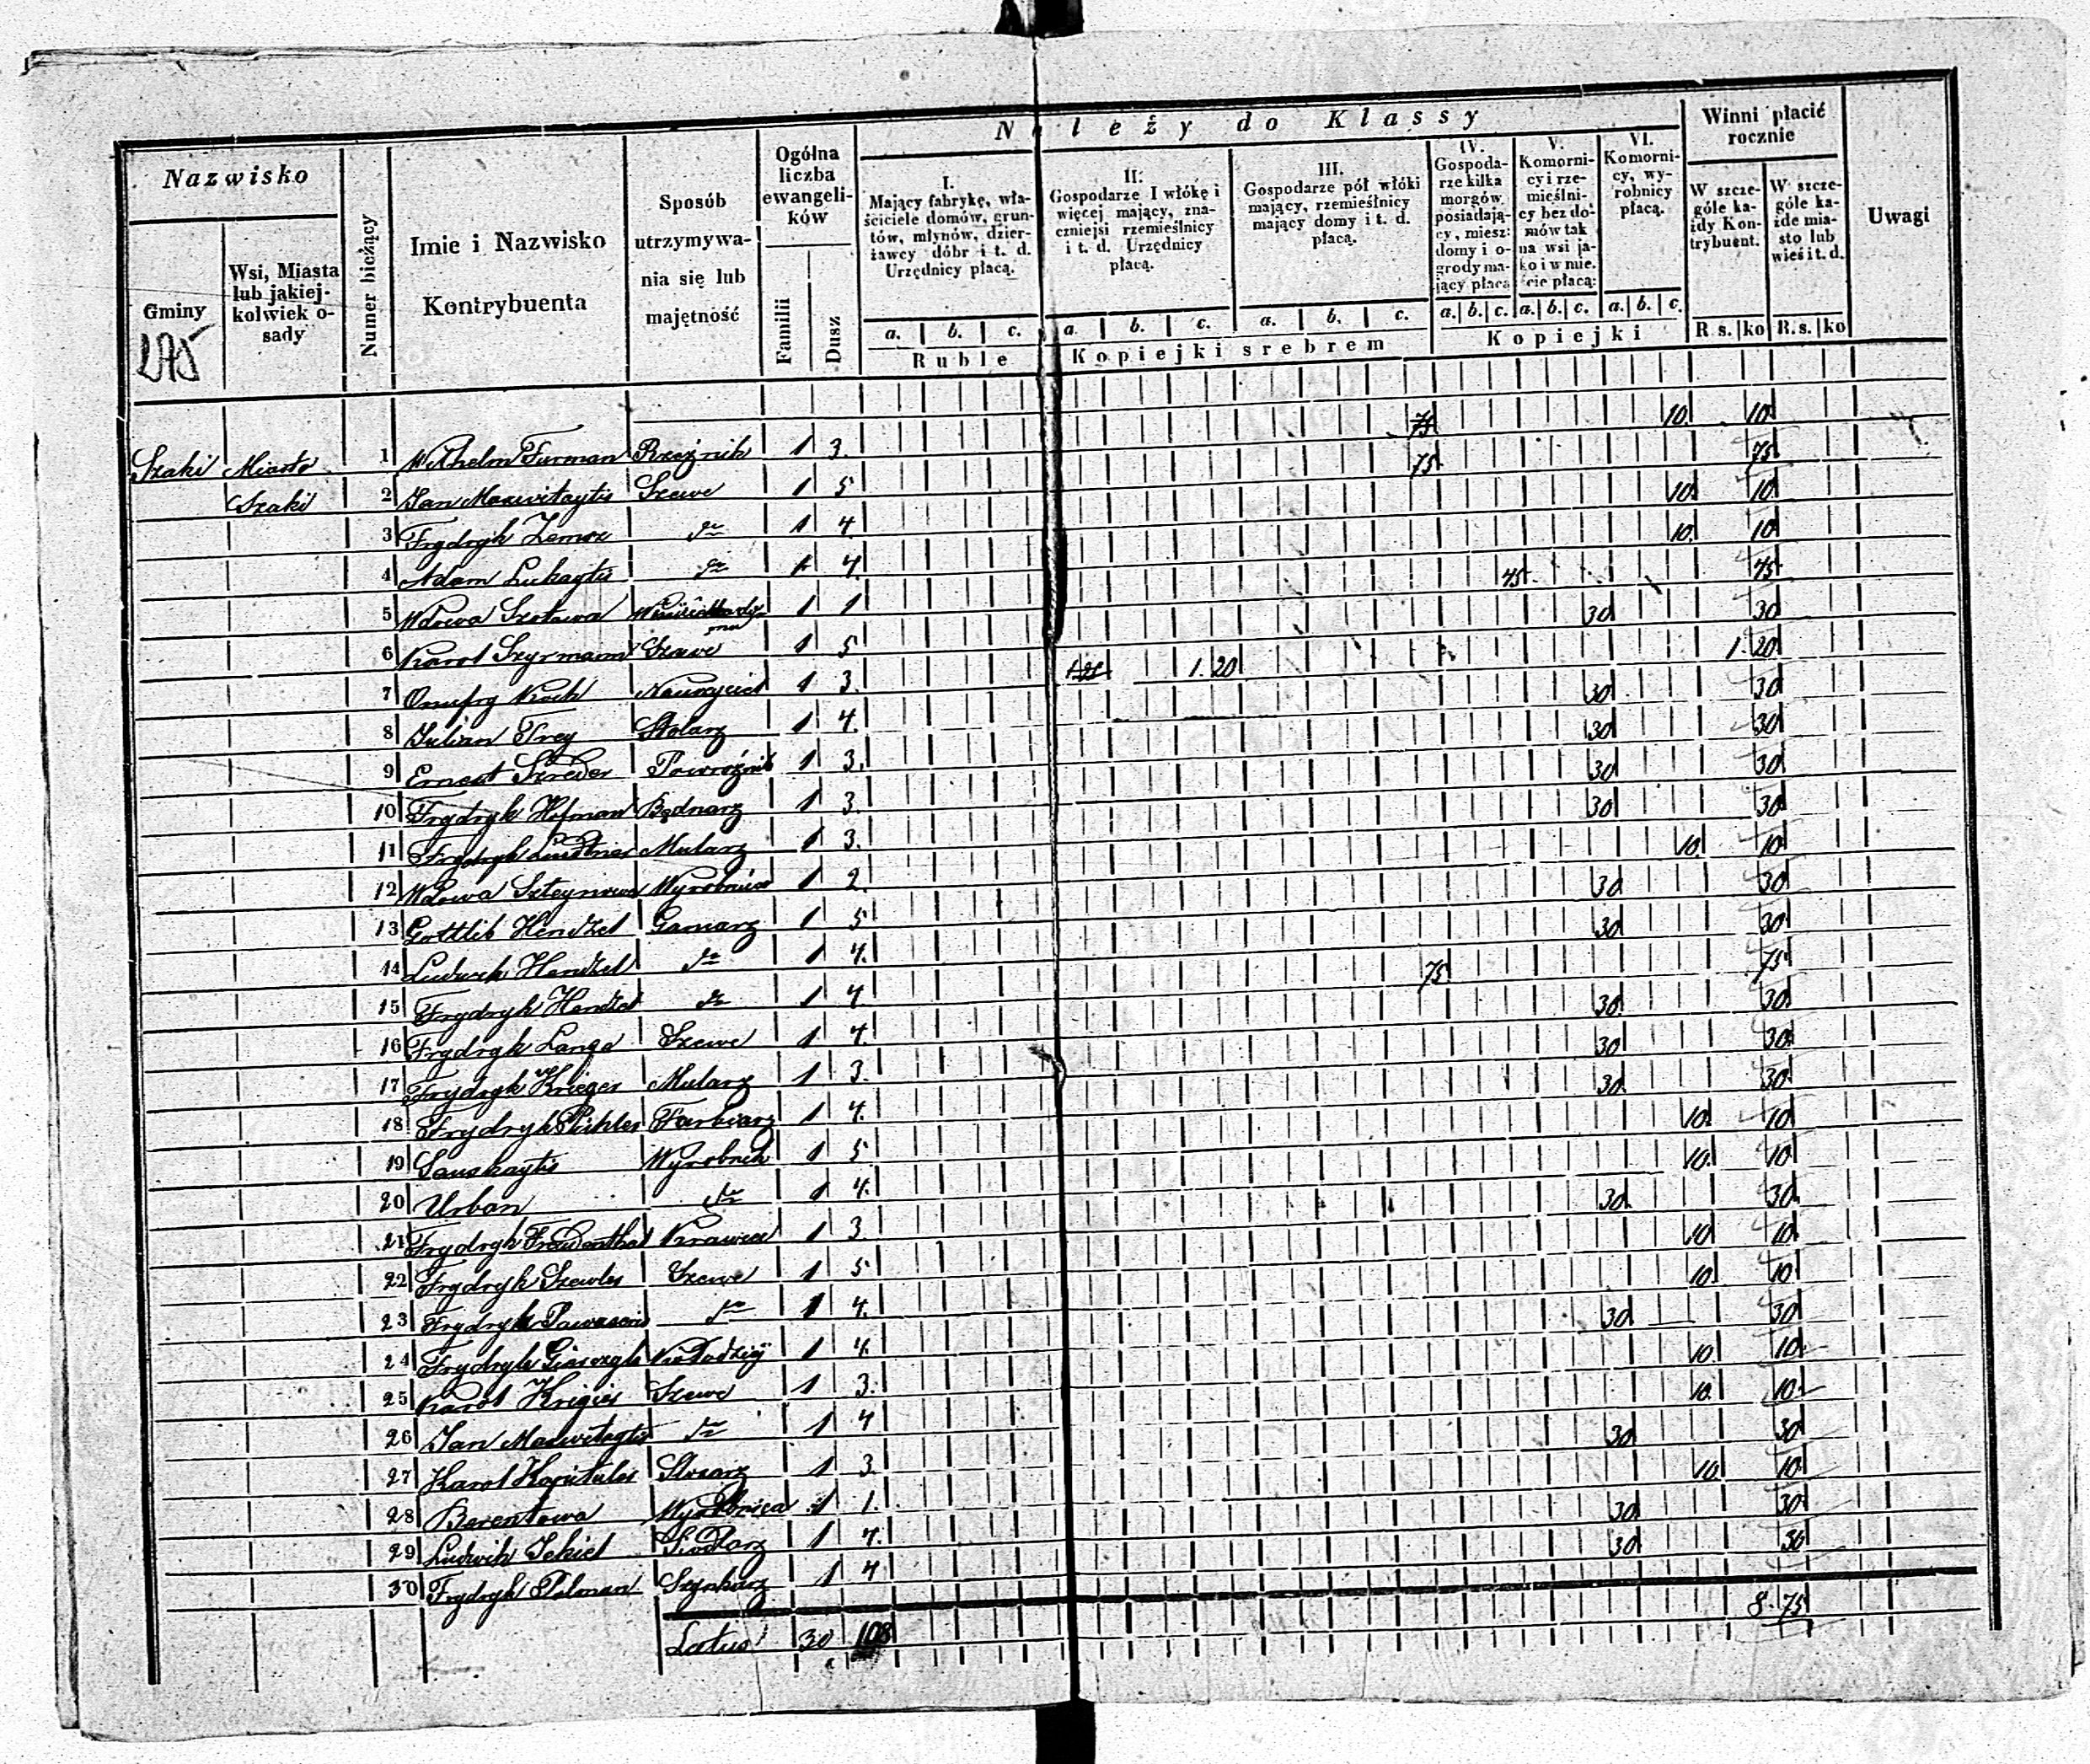 Należy do Klassy
Nazwisko
Gminy
Wsi, Miasta lub jakiej-
kolwiek o-
sady
Numer bieżący
Imie i Nazwisko
Kontrybuenta
Sposób
utrzymywa-
nia się lub
majętność
Ogólna
liczba
ewangeli-
ków
Familii
Dusz
I.
Mający fabrykę, wła-
ściciele domów, grun-
tów, młynów, dzier-
żawcy dóbr i t. d.
Urzędnicy płacą.
a. b. c.
Ruble
II:
Gospodarze I włókę i
więcej mający, zna-
czniejsi rzemieślnicy
i t. d. Urzędnicy
płacą.
a. b. c.
III.
Gospodarze pół włóki
mający, rzemieślnicy
mający domy i t. d.
płacą.
a. b. c.
Kopiejki srebrem
IV.
Gospoda-
rze kilka
morgów
posiadają-
cy, miesz:
domy i o-
grody ma-
jący płacą
a. b. c.
V.
Komorni-
cy i rze-
mieślni-
cy bez do-
mów tak
na wsi ja-
ko i w mie.
ście płacą:
a. b. c.
VI.
Komorni-
cy, wy-
robnicy
płacą.
a. b. c.
Kopiejki
Winni płacić
rocznie
W szcze-
góle ka-
żdy Kon-
trybuent.
R. s. ko
W szcze-
góle ka-
żde mia-
sto lub
wieś i t. d.
R. s. ko
Uwagi
275
Szaki Miasto 1 Wilhelm Furman Rzeźnik 1 3. 75 10. 10
Szaki 2 Jan Maswitaytis Szewc 1 5 75 75
3 Frydryk Lemke do 1 4. 10. 10
4 Adam Lukaytis do 1 4. 10. 10
5 Wdowa Szotowa 1 1 45 45
6 Karol Szyrmann Szewc 1 5 30 30
7 Onufry Koch Nauczyciel 1 3. 1.20 1.20
8 Julian Frey Stolarz 1 4. 30 30
9 Ernest Szreder Powroźnik 1 3. 30 30
10 Frydryk Hofman Bednarz 1 3. 30 30
11 Frydryk Mularz 1 3. 30 30
12 Wdowa Szteynowa Wyrobnica 1 2. 10. 10
13 Gottlib Hendzel Garncarz 1 5 30 30
14 Ludwik Hendzel do 1 4. 30 30
15 Frydryk Hendzel do 1 4 75 75
16 Frydryk Langa Szewc 1 4 30 30
17 Frydryk Krieger Mularz 1 3. 30 30
18 Frydryk Pichler Farbiarz 1 4. 30 30
19 Lauskaytis Wyrobnik 1 5 10. 10
20 Urban do 1 4. 10. 10
21 Frydryk Freudenthal Krawiec 1 3 30 30
22 Frydryk Szewler Szewc 1 5 10 10
23 Frydryk do 1 4. 10 10
24 Frydryk Kołodziej 1 4. 30 30
25 Karol Krigier Szewc 1 3. 10 10
26 Jan Maswitaytis do 1 4 10 10
27 Karol Kapituler Slosarz 1 3 30 30
28 Berentowa Wyrobnica 1 1. 10 10
29 Ludwik Jekiel Siodlarz 1 4. 30 30
30 Frydryk Polman Szynkarz 1 4 30 30
Latus 30 108 8.75